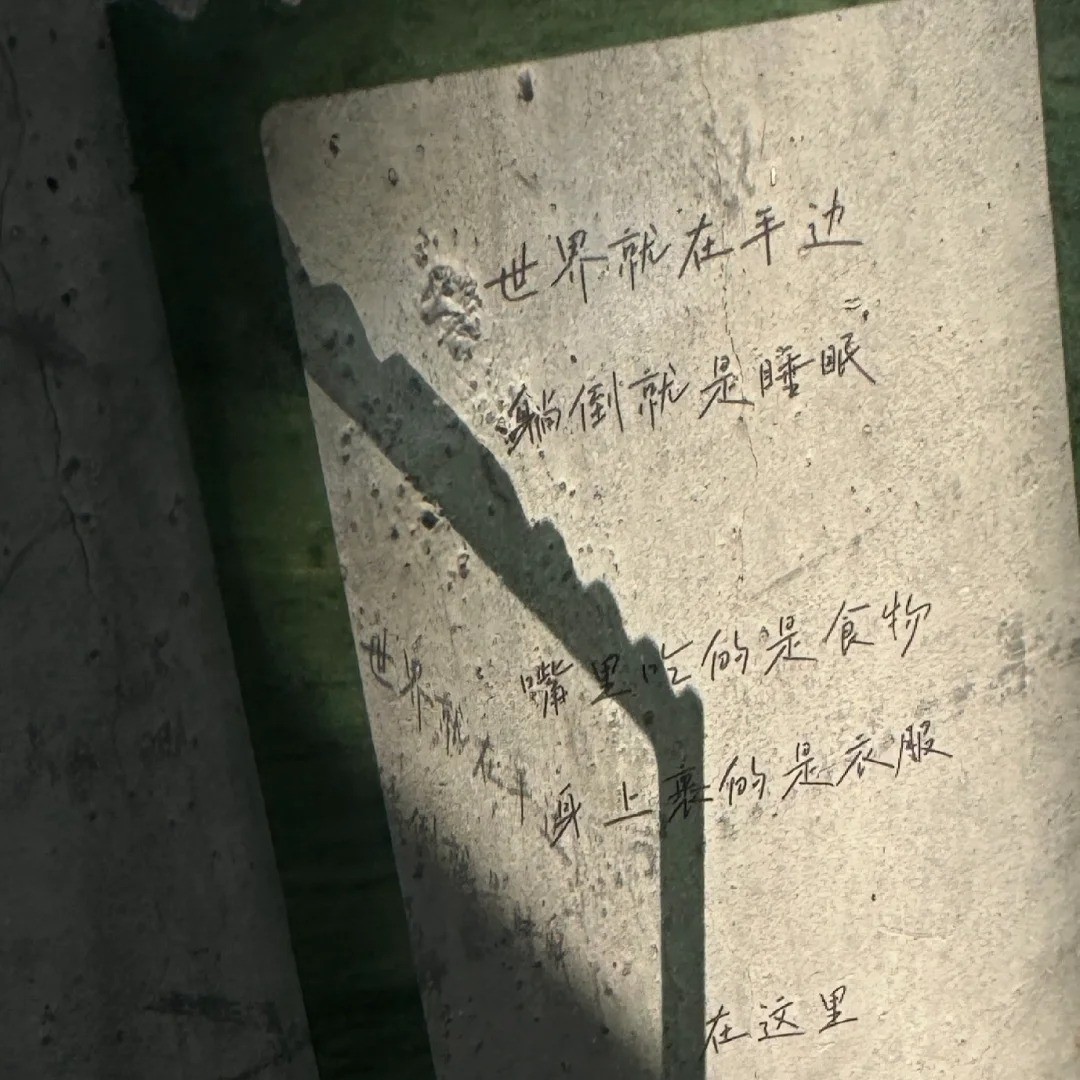 世界就在手边
躺倒就是睡眠
嘴里吃的是食物
身上裹的是衣服
在这里
世界就在手